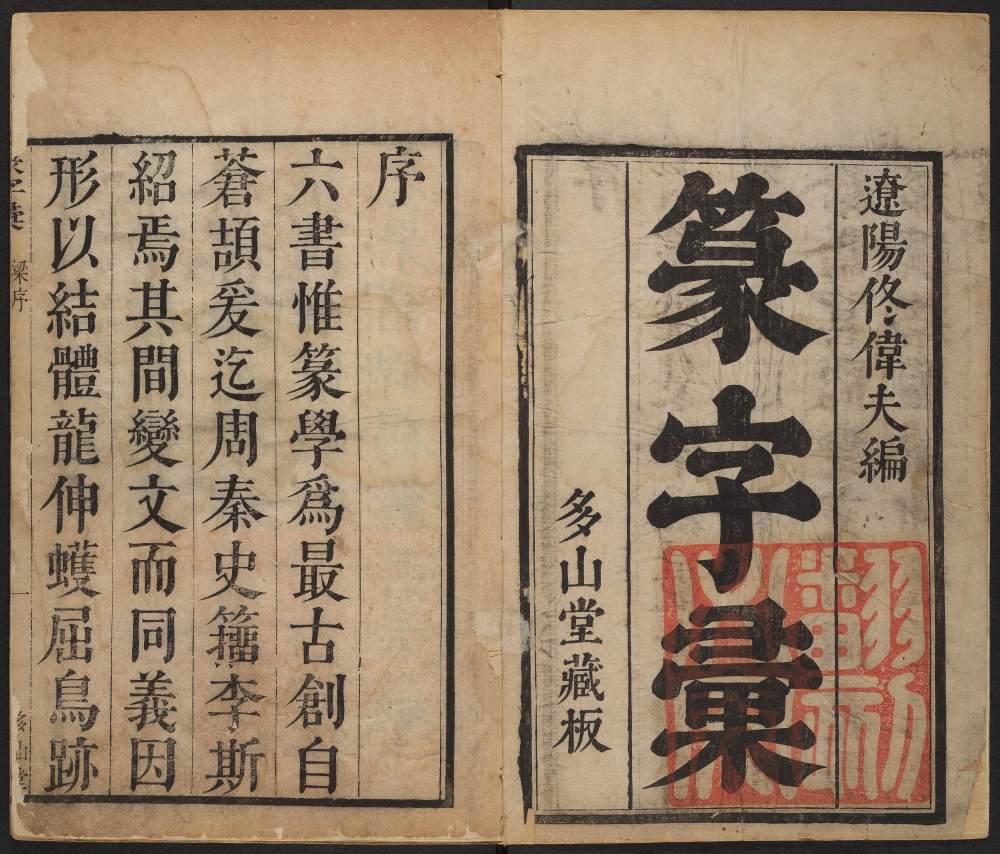 遼陽佟偉夫編
篆字彙
多山堂藏板
序
六書惟篆學爲最古創自
蒼頡爰迄周秦史籀李斯
紹焉其間變文而同義因
形以結體龍伸蠖屈鳥跡
篆字彙 梁序 一 多山堂